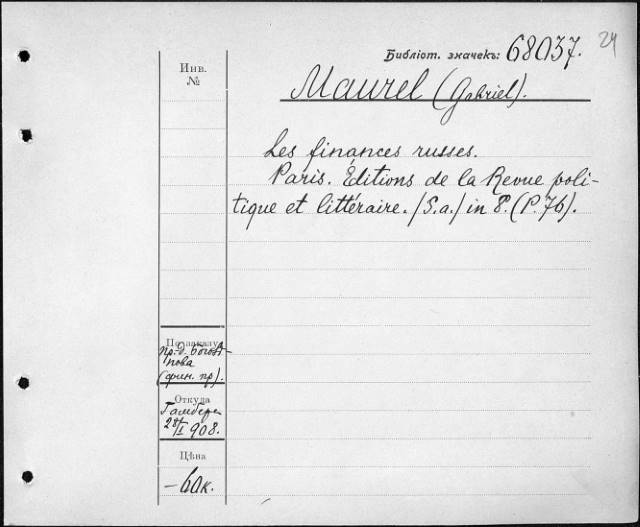 Библіот. значекъ: 68037.
24
Инв.
№
Maurel (Gabriel).
Les finances russes.
Paris. Éditions de la Revue poli-
tique et littéraire. /S.a./ in 8°. (P. 76).
По заказу
пр-д.
(фин. пр).
Откуда
28/I 908.
Цѣна
– 60 к.